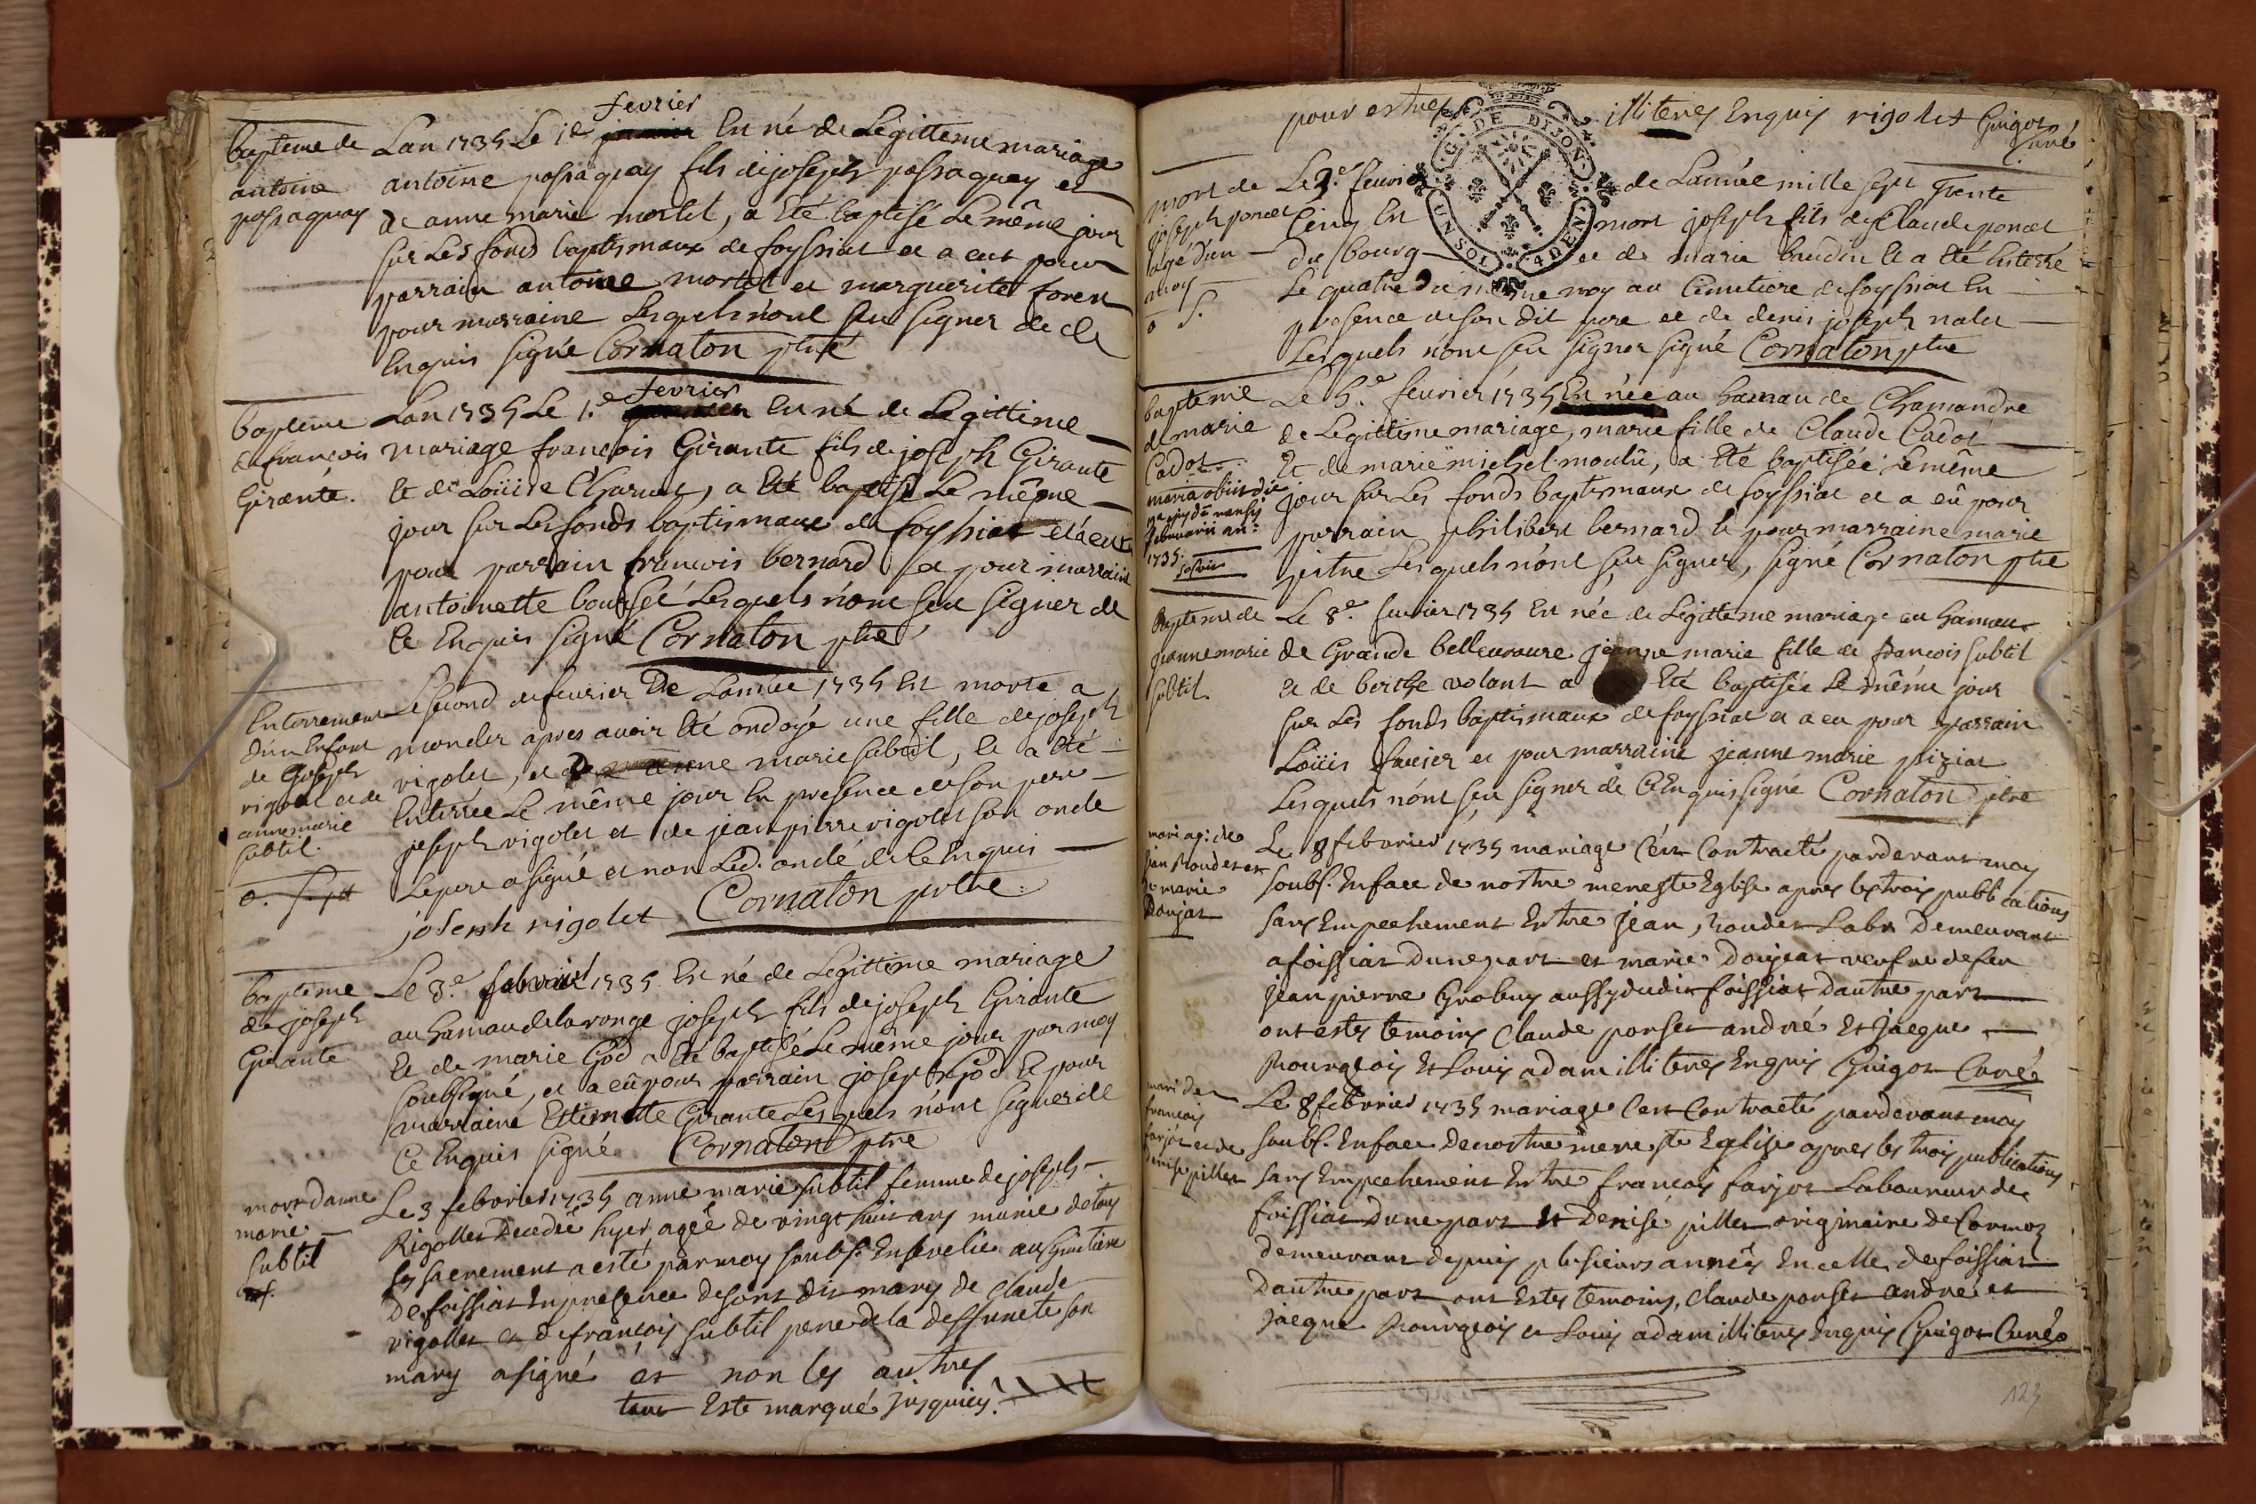 fevrier
bapteme de
antoine
passaquay
Lan 1735 Le 1e janvier Est né de Legitteme mariage
antoine passaquay fils de joseph passaquay et
de anne marie mortel, a Eté baptisé Le même jour
sur Les fonds baptismaux de foyssiat et a eut pour
parrain antoine mortel et marguerite foren
pour marraine Lesquels n'ont seu signer de ce
Enquis signé Cornaton ptre
fevrier
bapteme
de francois
Girante.
Lan 1735 Le 1.e Est né de Legittime
mariage francois Girante fils de joseph Girante
et de Loüise Charnet, a Eté baptisé Le même
jour sur Les fonds baptismaux de foyssiat et a eut
pour parrain francois bernard et pour marraine
antoinette boursée Lesquels n'ont seu signer de
ce Enquis signé Cornaton ptre
Enterrement
d'un Enfant
de Joseph
rigolet et de
anne marie
subtil.
Le second de fevrier De L'année 1735 Est morte a
mander apres avoir Eté ondoyé une fille de joseph
rigolet, et de anne marie subtil, et a Eté
Enterrée Le même jour En presence de son pere
joseph rigolet et de jean pierre rigolet son oncle
Le pere a signé et non Led. oncle de ce Enquis
joseph rigolet Cornaton ptre.
bapteme
de joseph
Girante
Le 3.e febvrier 1735 Est né de Legittime mariage
au hamau de la ronge joseph fils de joseph Girante
Et de marie God a Eté baptisé Le même jour par moy
soubsigné, et a eû pour parrain joseph God Et pour
marraine Ettiennette Girante Lesquels n'ont signer de
Ce Enquis signé Cornaton ptre
mort danne
marie
subtil
Le 3 febvrier 1735 anne marie subtil femme de joseph
Rigollet Decedée hyer agée de vingt huit ans munie de tous
ses sacrement a esté par moy soubs. Ensevelie au Cimetiere
De foissiat En presence de sont dit mary de Claude
rigollet et de françois subtil pere de la deffuncte son
mary a signé et non les autres
tout Este marqué jusquicy.
pour estre illiteres Enquis rigolet Guigot
Curé
mort de
joseph poncet
agé d'un
moy
Le 3.e fevrier de Lannée mille sept Trente
Cinq Est mort joseph fils de Claude poncet
du bourg et de marie baudin Et a Eté Enterré
Le quatre Du même moy au Cimetiere de foyssiat En
presence de son dit pere et de denis joseph nalet
Lesquels n'ont seu signer signé Cornaton ptre
bapteme
de marie
Cadot
maria obiit die
februarii an:
1735.
Le 5.e fevrier 1735 Est née au hamau de Chamandre
de Legittime mariage, marie fille de Claude Cadot
Et de marie michel moulü, a Eté baptisée Le même
jour sur Les fonds baptismaux de foyssiat et a eû pour
parrain philibert bernard et pour marraine marie
pitre Lesquels n'ont seu signer, signé Cornaton ptre
Bapteme de
jeanne marie
subtil
Le 8.e fevrier 1735 Est née de Legitteme mariage au hamau
de Grande bellevavre jeanne marie fille de francois subtil
et de berthe volant a Eté baptisée Le même jour
sur Les fonds baptismaux de foyssiat et a eu pour parrain
Loüis favier et pour marraine jeanne marie piziat
Lesquels n'ont seu signer de Ce Enquis signé Cornaton ptre
mariage de
jean Roudet et
de marie
Donjat
Le 8 febvrier 1735 mariage C'est Contracté pardevant moy
soubs. En face de nostre mere ste Eglise apres les trois publications
sans Empechement Entre jean, Roudet Labr Demeurant
a foissiat dune part et marie Donjeat veufve de feu
jean pierre Grobuy aussy dudit foissiat dautre part
ont estes temoins Claude ponset andré Et jaeque
Bourgeois Et Louis adam illiteres Enquis Guigot Curé
mari de
francois
farjot et de
denise pillet
Le 8 febvrier 1735 mariage C'est Contracté pardevant moy
soubs. En face De nostre mere ste Eglise apres les trois publications
sans Empechement Entre francois farjot Laboureur de
foissiat dune part Et Denise pillet originaire de Cormoz
demeurant depuis plusieurs années En celle de foissiat
dautre part ont Estes temoins, Claude ponset andre et
Jaeque Bourgeois et Louis adam illiteres Enquis Guigot Curé
G. DE DIJON
UN SOL 4 DEN.
123